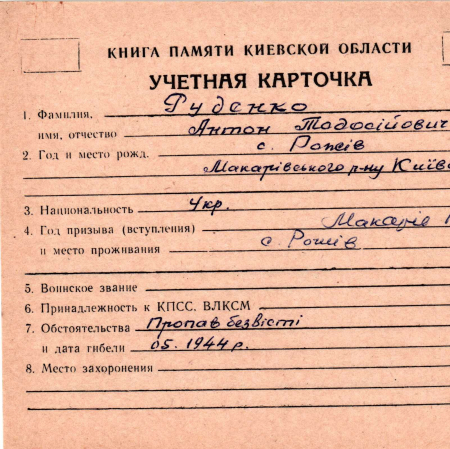 КНИГА ПАМЯТИ КИЕВСКОЙ ОБЛАСТИ
УЧЕТНАЯ КАРТОЧКА
1. Фамилия, Руденко
имя, отчество Антон Тодосійович
2. Год и место рожд. с. Рожів
Макарівського р-ну Київс
3. Национальность Укр.
4. Год призыва (вступления) Макарів
и место проживания с. Рожів
5. Воинское звание
6. Принадлежность к КПСС. ВЛКСМ
7. Обстоятельства Пропав безвісті
и дата гибели 05. 1944 р.
8. Место захоронения